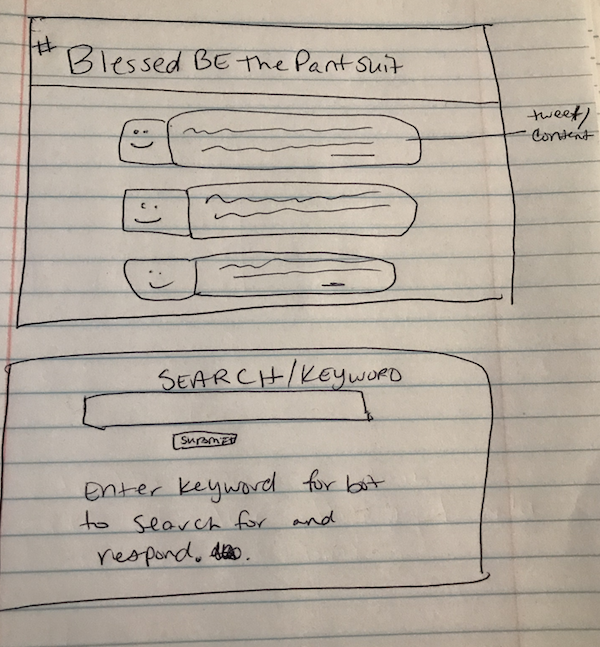 # Blessed BE the Pantsuit
tweet/
content
SEARCH/KEYWORD
SUBMIT
Enter keyword for bot
to search for and
respond.